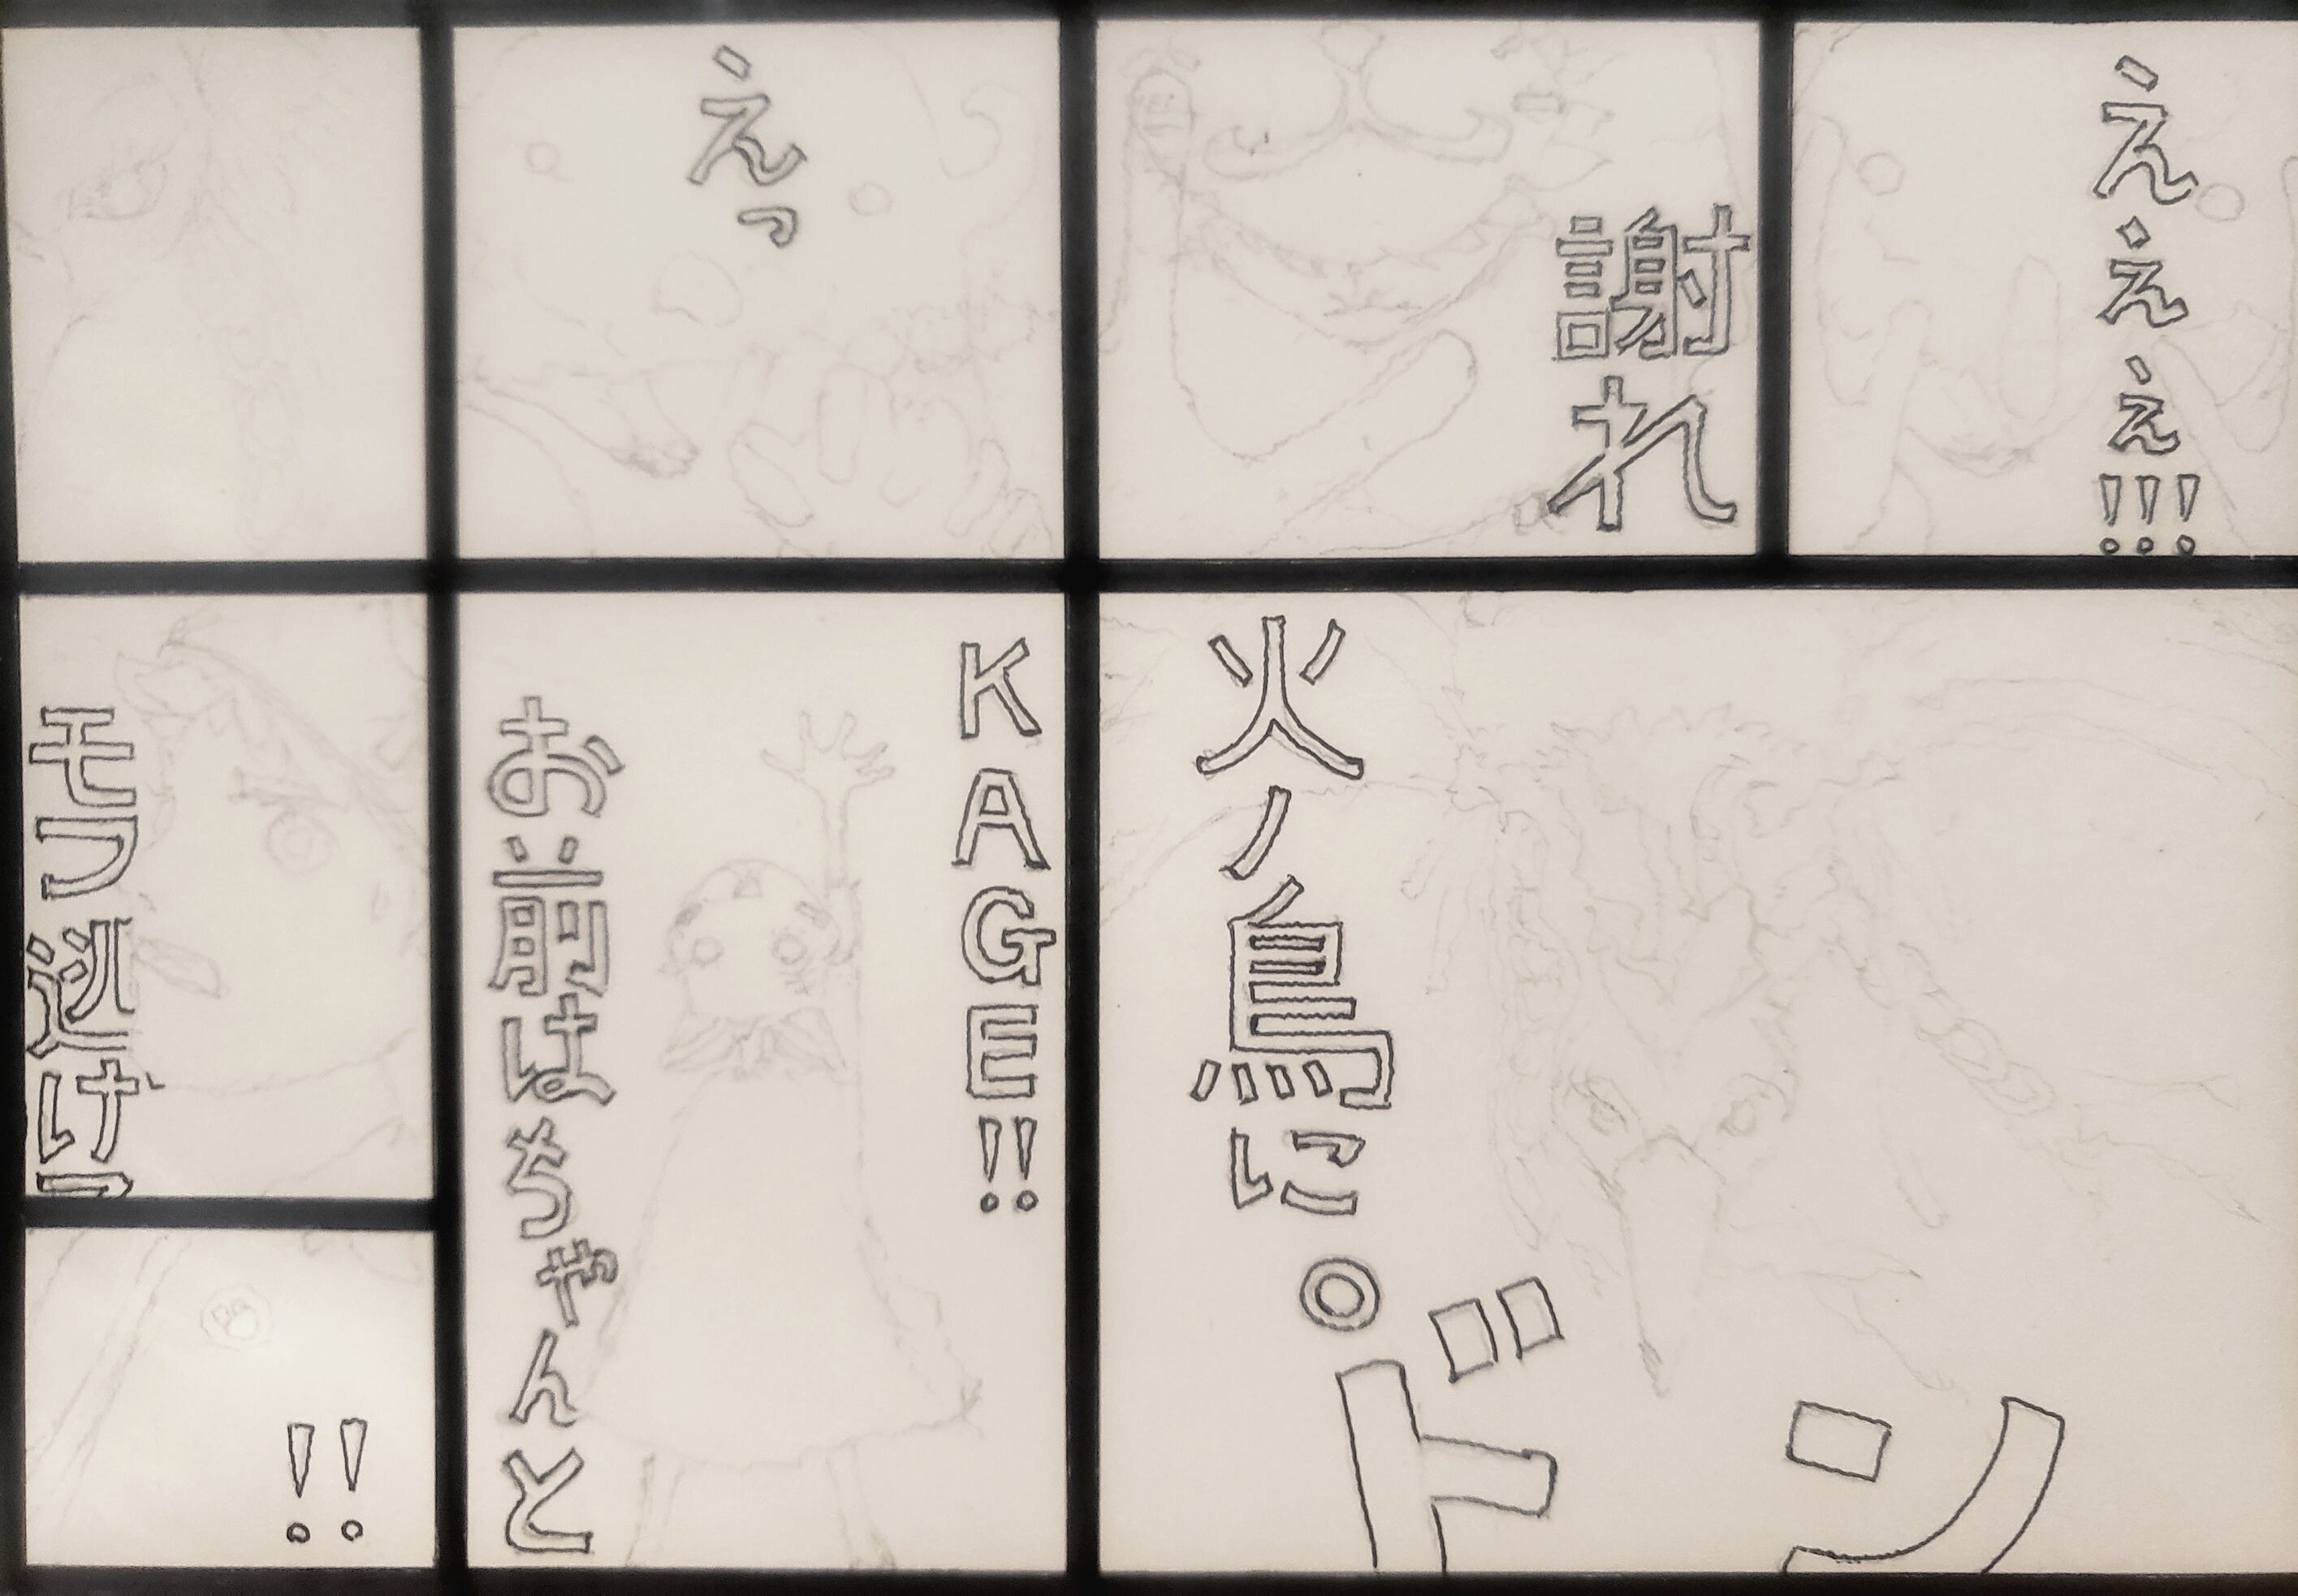 えぇぇ!!!
謝れ
えっ
火ノ鳥に。
ドン
KAGE!!
お前はちゃんと
!!